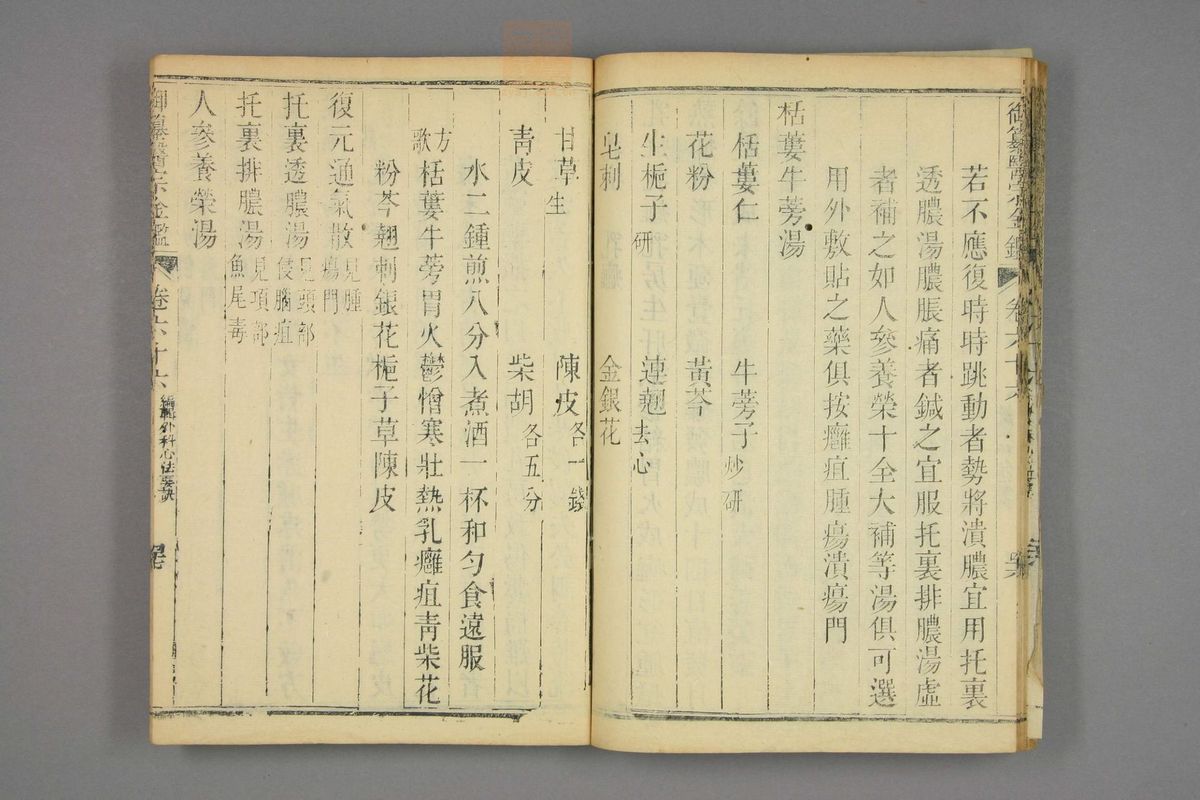 御纂醫宗金鑑 卷六十六
若不應復時時跳動者勢將潰膿宜用托裏
透膿湯膿脹痛者鍼之宜服托裏排膿湯虛
者補之如人參養榮十全大補等湯俱可選
用外敷貼之藥俱按癰疽腫瘍潰瘍門
栝蔞牛蒡湯
栝蔞仁 牛蒡子炒研
花粉 黃芩
生梔子研 連翹去心
皂刺 金銀花
甘草生 陳皮各一錢
青皮 柴胡各五分
水二鍾煎八分入煮酒一杯和勻食遠服
方歌 栝蔞牛蒡胃火鬱憎寒壯熱乳癰疽青柴花
粉芩翹刺銀花梔子草陳皮
復元通氣散見腫瘍門
托裏透膿湯見頭部侵腦疽
托裏排膿湯見項部魚尾毒
人參養榮湯
御纂醫宗金鑑 卷六十六 編輯外科心法要訣